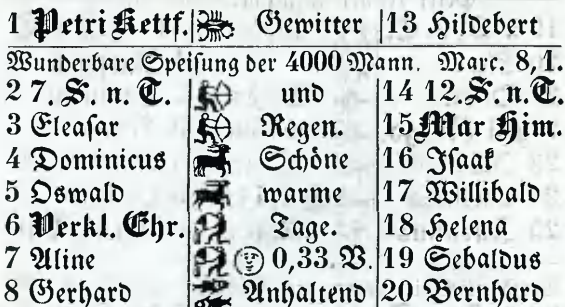 1 Petri Kettf. Gewitter 13 Hildebert
Wunderbare Speisung der 4000 Mann. Marc. 8,1.
2 7. S. n. T. und 14 12. S. n. T.
3 Eleasar Regen. 15 Mar Him.
4 Dominicus Schöne 16 Isaak
5 Oswald warme 17 Willibald
6 Verkl. Chr. Tage. 18 Helena
7 Aline 0,33. V. 19 Sebaldus
8 Gerhard Anhaltend 20 Bernhard